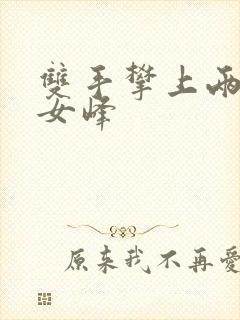 雙手攀上兩
女峰
原來我不再愛